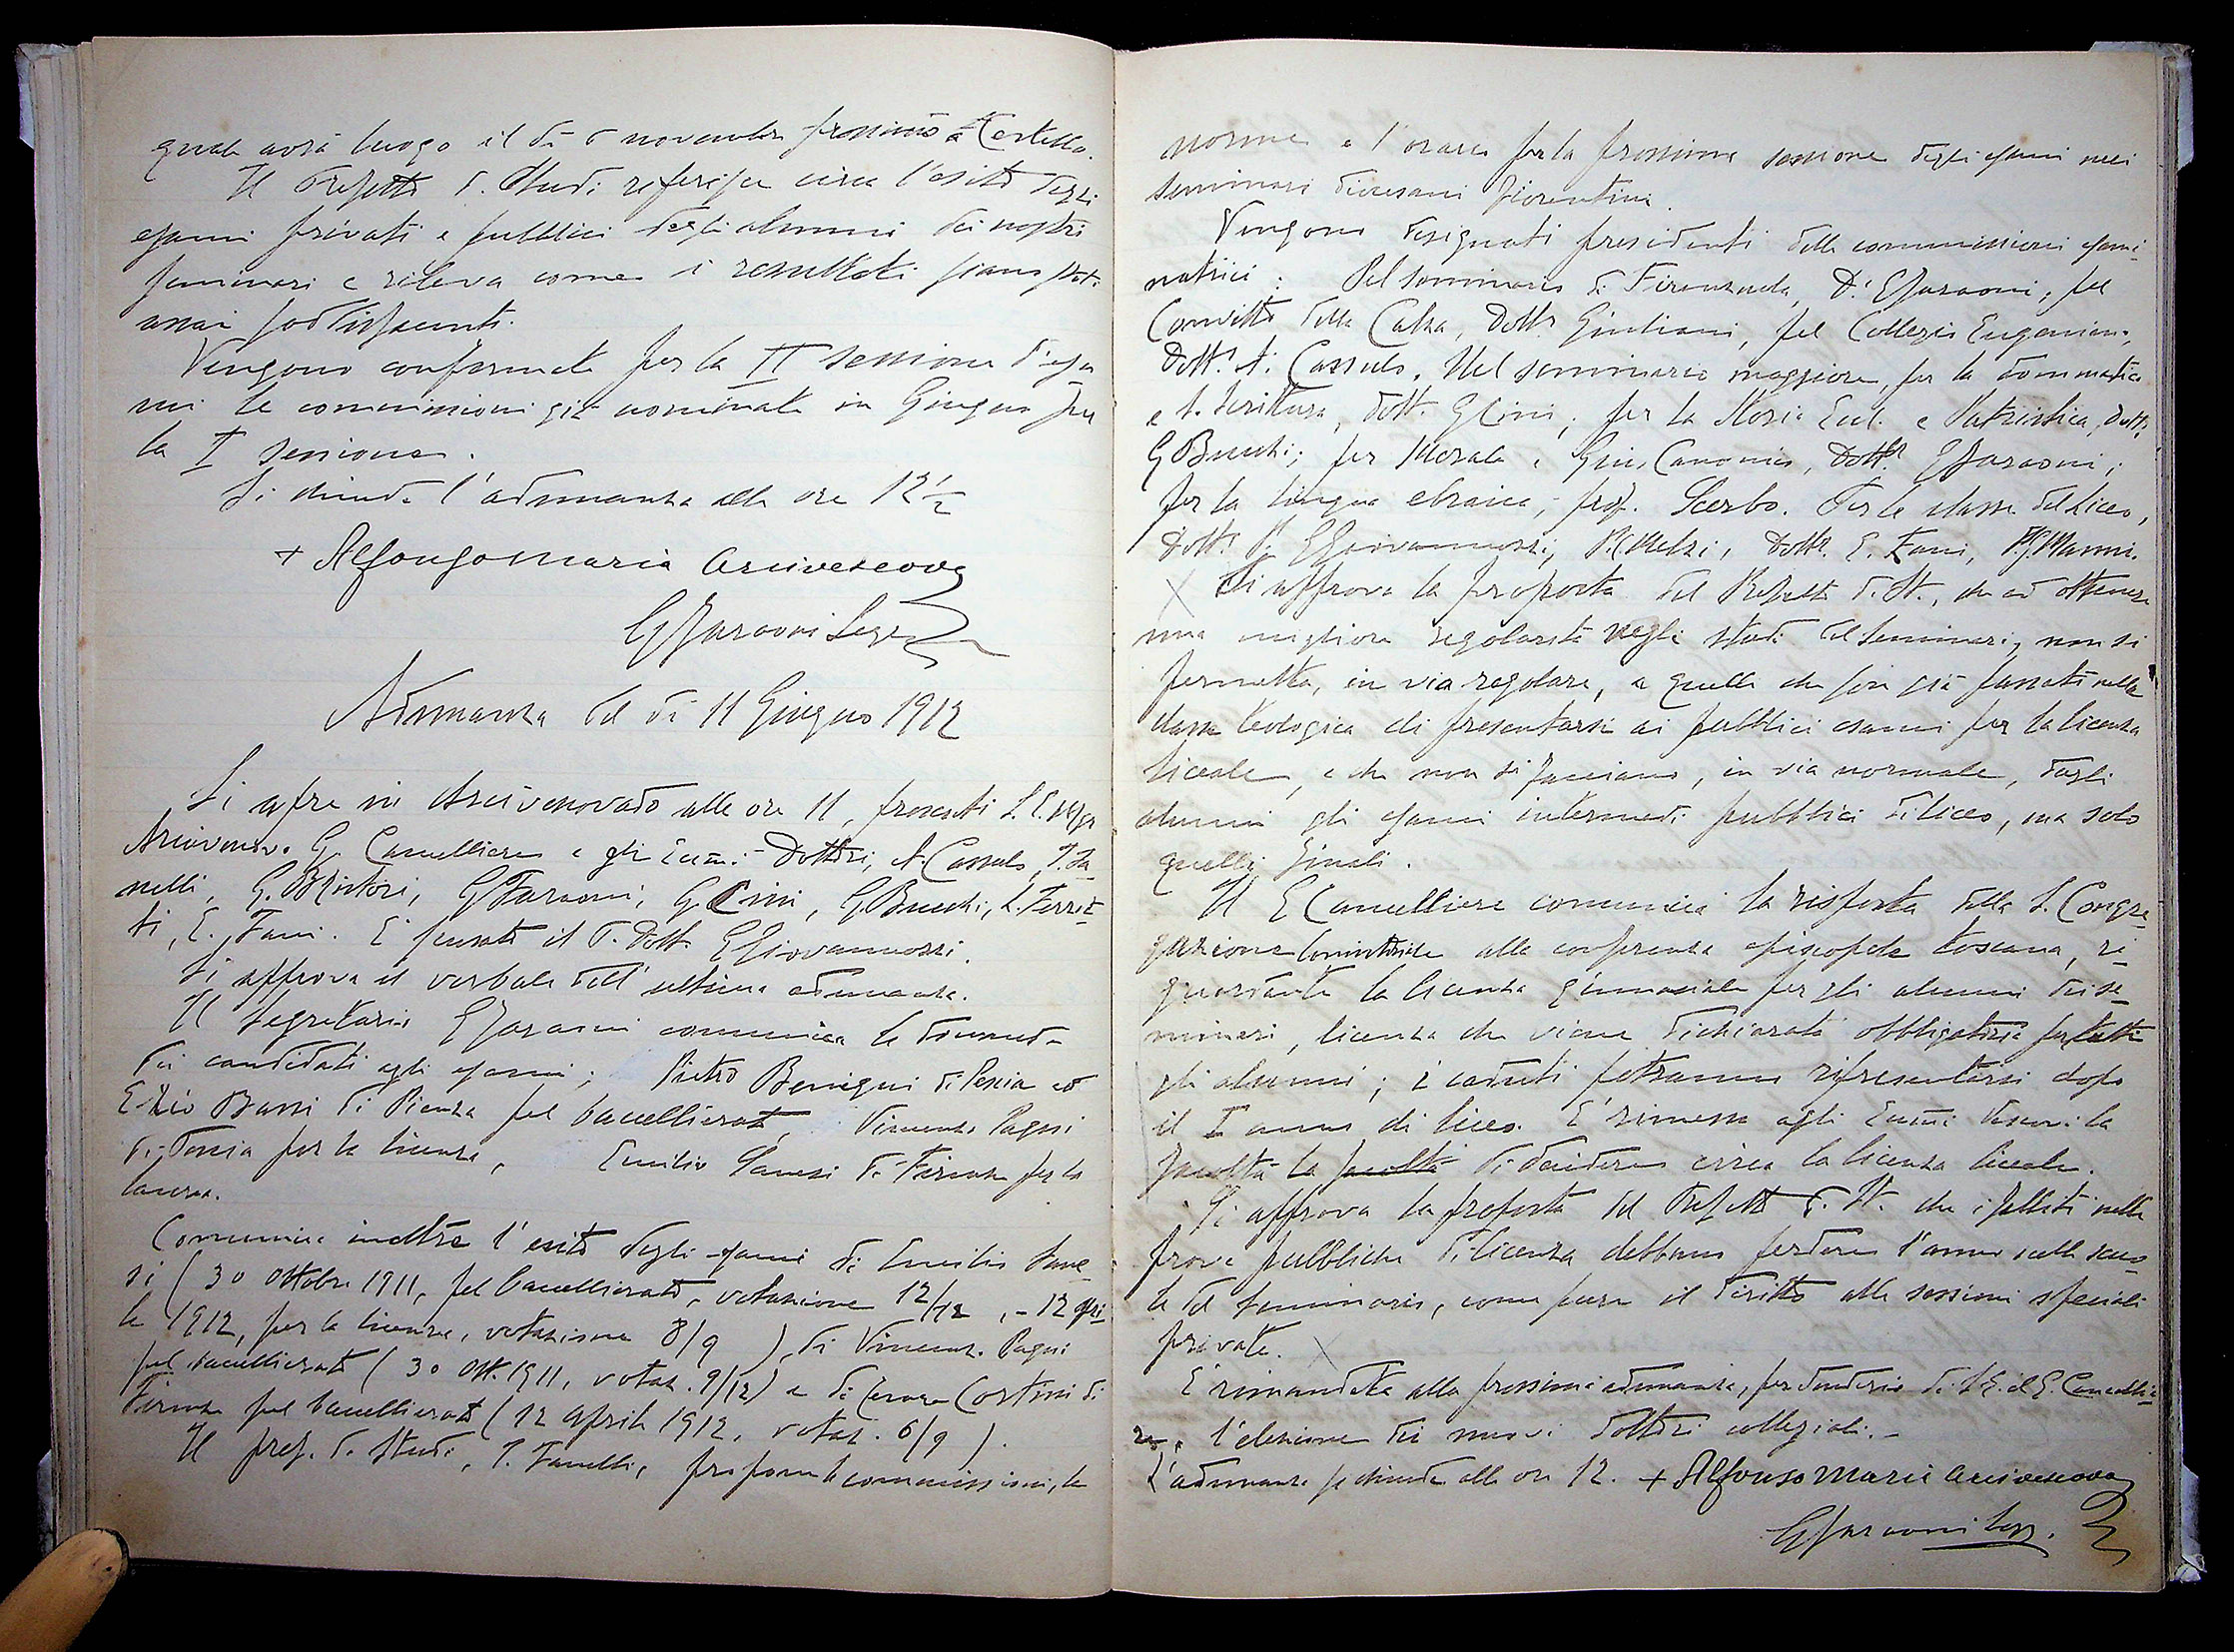 quale avrà luogo il dì 6 novembre prossimo a Castello.
Il Prefetto d. Studi riferisce circa l'esito degli
esami privati e pubblici degli alunni dei nostri
seminari e rileva come i resultati siano stati
assai soddisfacenti.
Vengono confermate per la II sessione d'esa
mi le commissioni già nominate in Giugno per
la I sessione.
Si chiude l'adunanza alle ore 12 1/2
+ Alfonso Maria Arcivescovo
G Faraoni Segr.
Adunanza del dì 11 Giugno 1912
Si apre in Arcivescovado alle ore 11, presenti S. E. Mgr
Arcivescovo G. Cancelliere e gli Ecc̃mi Dottori, A. Cassulo, P. Fa-
nelli, G. Bristori, G Faraoni, G. Cini, G. Buschi, L. Ferret-
ti, E. Fani. È scusato il P. Dott. Giovannozzi.
Si approva il verbale dell'ultima adunanza.
Il Segretario G Faraoni comunica le domande
dei candidati agli esami; Pietro Benigni di Pescia ed
Ezio Bassi di Pienza pel baccellierato, Vincenzo Pagni
di Pescia per la licenza, Emilio Sanesi di Firenze per la
laurea.
Comunica inoltre l'esito degli esami di Emilio Sane-
si (30 Ottobre 1911, pel baccellierato, votazione 12/12, - 12 Apri-
le 1912, per la licenza, votazione 8/9), di Vincenzo Pagni
pel baccellierato (30 Ott. 1911, votaz. 9/12) e di Cesare Cortini di
Firenze pel baccellierato (12 Aprile 1912, votaz. 6/9).
Il pref. d. studi, P. Fanelli, propone le commissioni, le
norme e l'orario per la prossima sessione degli esami nei
seminari diocesani fiorentini.
Vengono designati presidenti delle commissioni esami-
natrici: Pel seminario di Firenzuola, D. G Faraoni; pel
Convitto della Calza, Dott. Giuliani, pel Collegio Eugeniano,
Dott. A. Cassulo. Nel seminario maggiore, per la dommatica
e S. Scrittura, dott. G Cini; per la Storia Eccl. e Patristica, dott.
G Buschi; per Morale e Gius Canonico, Dott. G Faraoni;
per la lingua ebraica, prof. Scerbo. Per le classi del Liceo,
Dott. P. G Giovannozzi, P. Melzi, Dott. E. Fani, P. G. Manni.
X Si approva la proposta del Prefetto d. St., che ad ottenere
una migliore regolarità negli studi del seminario, non si
permetta, in via regolare, a quelli che son già passati nella
classe teologica di presentarsi ai pubblici esami per la licenza
liceale, e che non si facciano, in via normale, dagli
alunni gli esami intermedi pubblici di liceo, ma solo
quelli finali.
Il G Cancelliere comunica la risposta della S. Congre-
gazione Concistoriale alla conferenza episcopale toscana, ri-
guardante la licenza ginnasiale per gli alunni dei se-
minari, licenza che viene dichiarata obbligatoria per tutti
gli alunni; i caduti potranno ripresentarsi dopo
il I anno di liceo. È rimessa agli Ecc̃mi Vescovi la
facoltà la facoltà di decidere circa la licenza liceale.
Si approva la proposta del Prefetto d. St. che i falliti nelle
prove pubbliche di licenza debbano perdere l'anno nelle scuo-
le del seminario, come pure il diritto alle sessioni speciali
private. X
È rimandata alla prossima adunanza, per desiderio di S. E. il G. Cancellie-
re, l'elezione dei nuovi dottori collegiali. -
L'adunanza si chiude alle ore 12. + Alfonso Maria Arcivescovo
G Faraoni Segr.